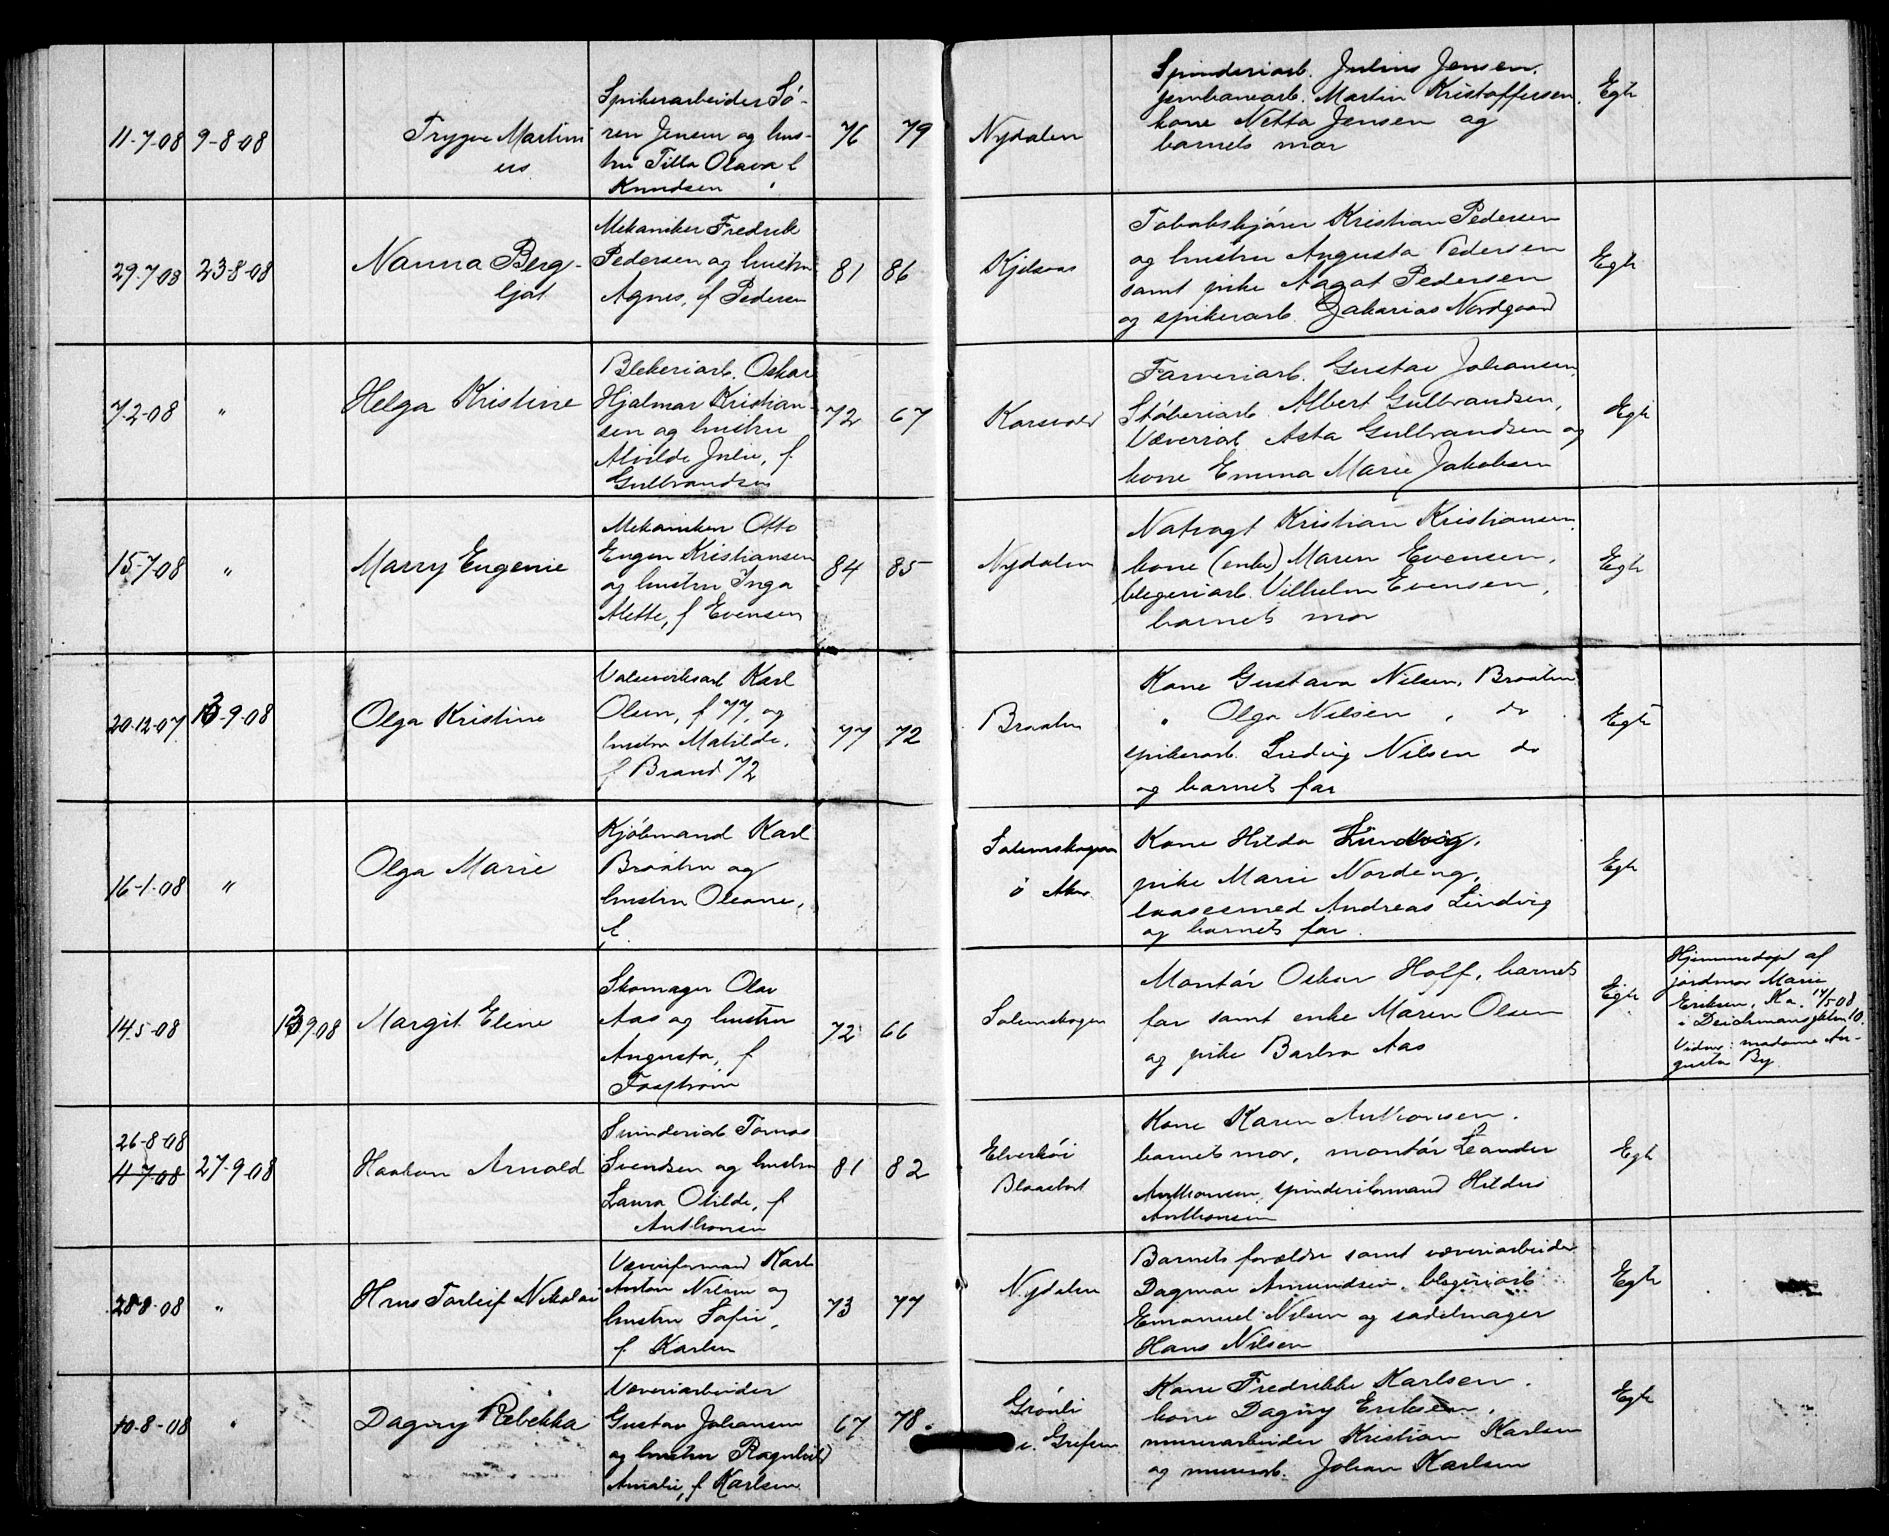 11-7-08 9-8-08
Trygve Martini
us
Spikerarbeider Sö-
ren Jensen og hus-
tru Tilla Olava f
Knudsen
76 79
Nydalen
Spinderiarb. Julius Jensen,
jernbanearb. Martin Kristoffersen,
kone Netta Jensen og
barnets mor
Egte
29-7-08 23-8-08
Nanna Berg-
ljot
Mekaniker Fredrik
Pedersen og hustru
Agnes, f Pedersen
81 86
Kjelsaas
Tobakskjörer Kristian Pedersen
og hustru Augusta Pedersen
samt pike Aagot Pedersen
og spikerarb. Zakarias Nordgaard
Egte
7-2-08 "
Helga Kristine
Blekeriarb. Oskar
Hjalmar Kristian-
sen og hustru
Alvilde Julie, f.
Gulbrandsen
72 67
Korsvold
Farveriarb. Gustav Johansen,
Stöberiarb. Albert Gulbrandsen,
Væveriarb Asta Gulbrandsen og
kone Emma Marie Jakobsen
Egte
15-7-08 "
Marry Eugenie
Mekaniker Otto
Eugen Kristiansen
og hustru Inga
Alette, f Evensen
84 85
Nydalen
Natvagt Kristian Kristiansen,
kone (enke) Maren Evensen,
blegeriarb. Vilhelm Evensen,
barnets mor
Egte
20-12-07 13-9-08
Olga Kristine
Valseverksarb Karl
Olsen, f 77, og
hustru Matilde,
f Brand 72
77 72
Braaten
Kone Gustava Nilsen, Braaten
" Olga Nilsen, do
spikerarb. Ludvig Nilsen do
og barnets far
Egte
16-1-08 "
Olga Marie
Kjöbmand Karl
Braaten og
hustru Oleane,
f.
Solemskogen
ö Aker
Kone Hilda Lindvig,
pike Marie Nordeng,
laasesmed Andreas Lindvig
og barnets far.
Egte
14-5-08 13-9-08
Margit Eline
Skomager Olav
Aas og hustru
Augusta, f
72 66
Solemskogen
Montör Oskar Hoff, barnets
far samt enke Maren Olsen
og pike Barbra Aas
Egte
Hjemmedöpt af
jordmor Marie
Eriksen, Ka. 14/5 08
i Deichmansgaten 10.
Vidner: madame Au-
gusta By
26-8-08
11-7-08 27-9-08
Haakon Arnold
Spinderiarb Tomas
Svendsen og hustru
Laura Otilde, f
Anthonsen
81 82
Elverhöi
Kone Karen Anthonsen,
barnets mor, montör Leander
Anthonsen, spinderiformand Hildus
Anthonsen
Egte
28-8-08 "
Hans Torleif Nikolai
Væveriformand Karl
Anton Nilsen og
hustru Sofie,
f Karlsen
73 77
Nydalen
Barnets forældre samt væveriarbeider
Dagmar Amundsen, blegeriarb
Emanuel Nilsen og sadelmager
Hans Nilsen
Egte
10-8-08 "
Dagny Rebekka
Væveriarbeider
Gustav Johansen
og hustru Ragnhild
Amalie, f Karlsen
67 78.
Grönli
i. Grefsen
Kone Fredrikke Karlsen,
kone Dagny Eriksen,
murerarbeider Kristian Karlsen
og murerarb. Johan Karlsen
Egte